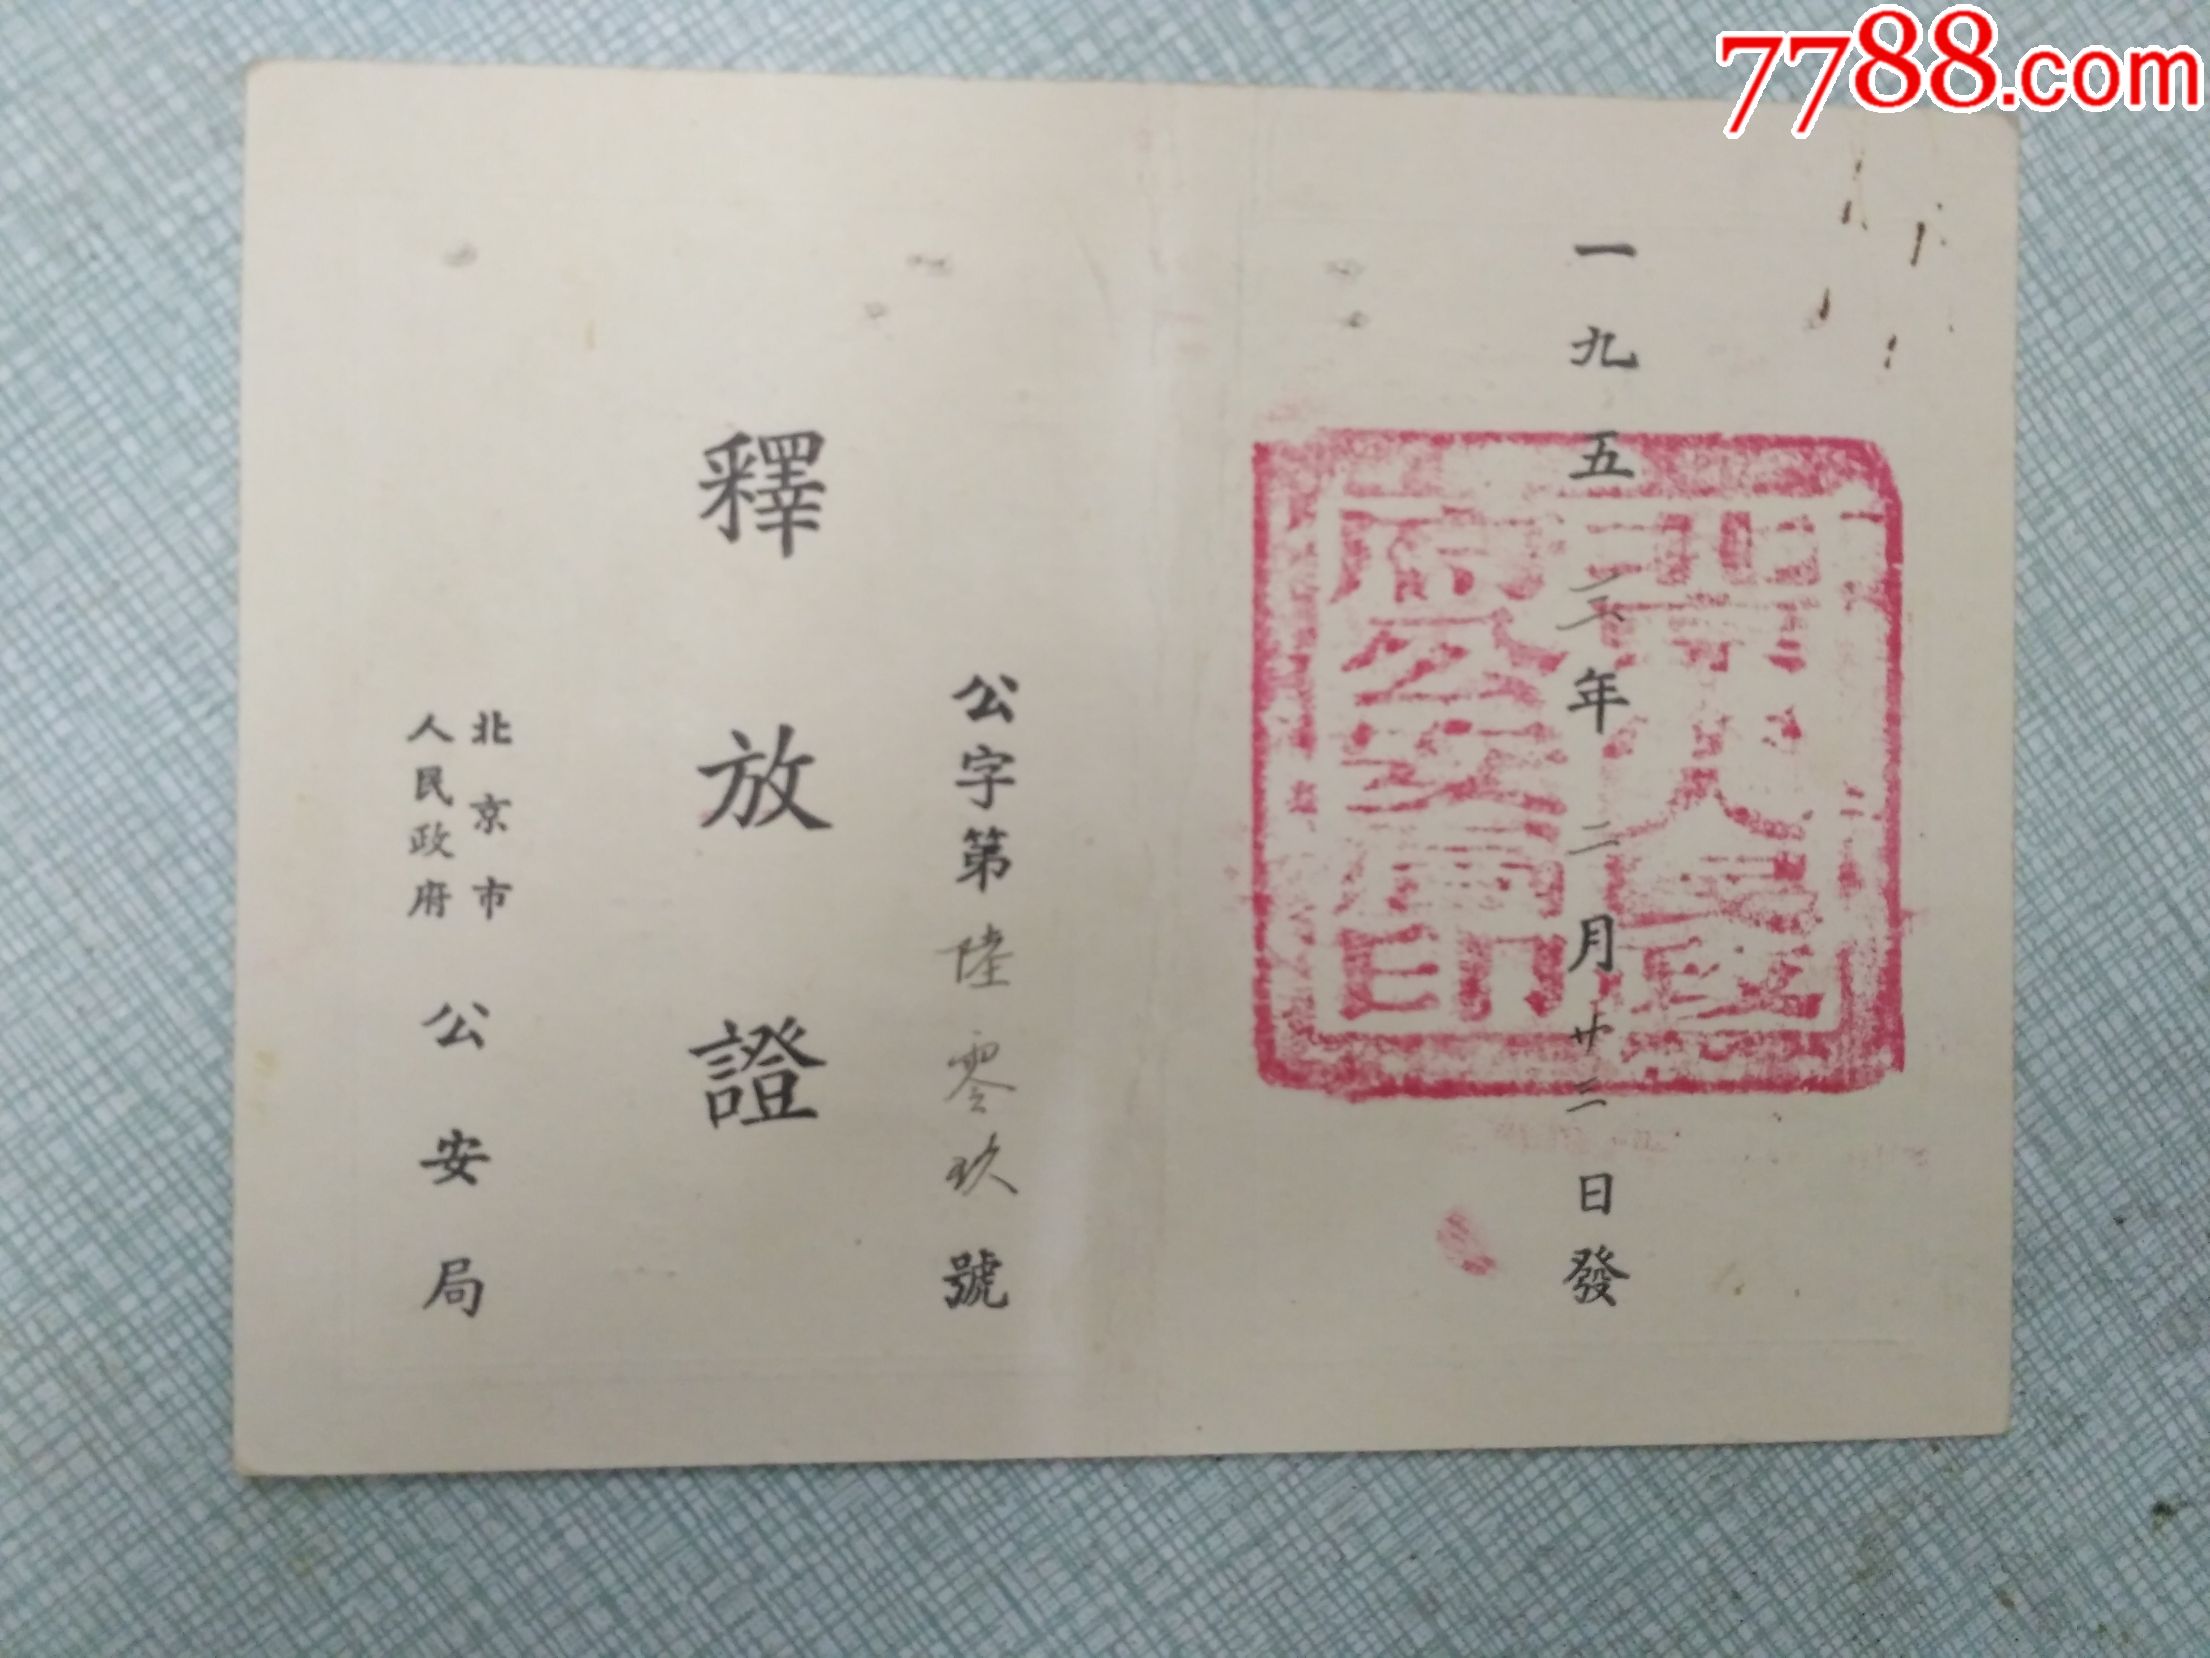 7788.com
一九五年二月廿三日發
北京市人民政
府公安局印
公字第陸零玖號
釋放證
北京市
人民政府
公安局